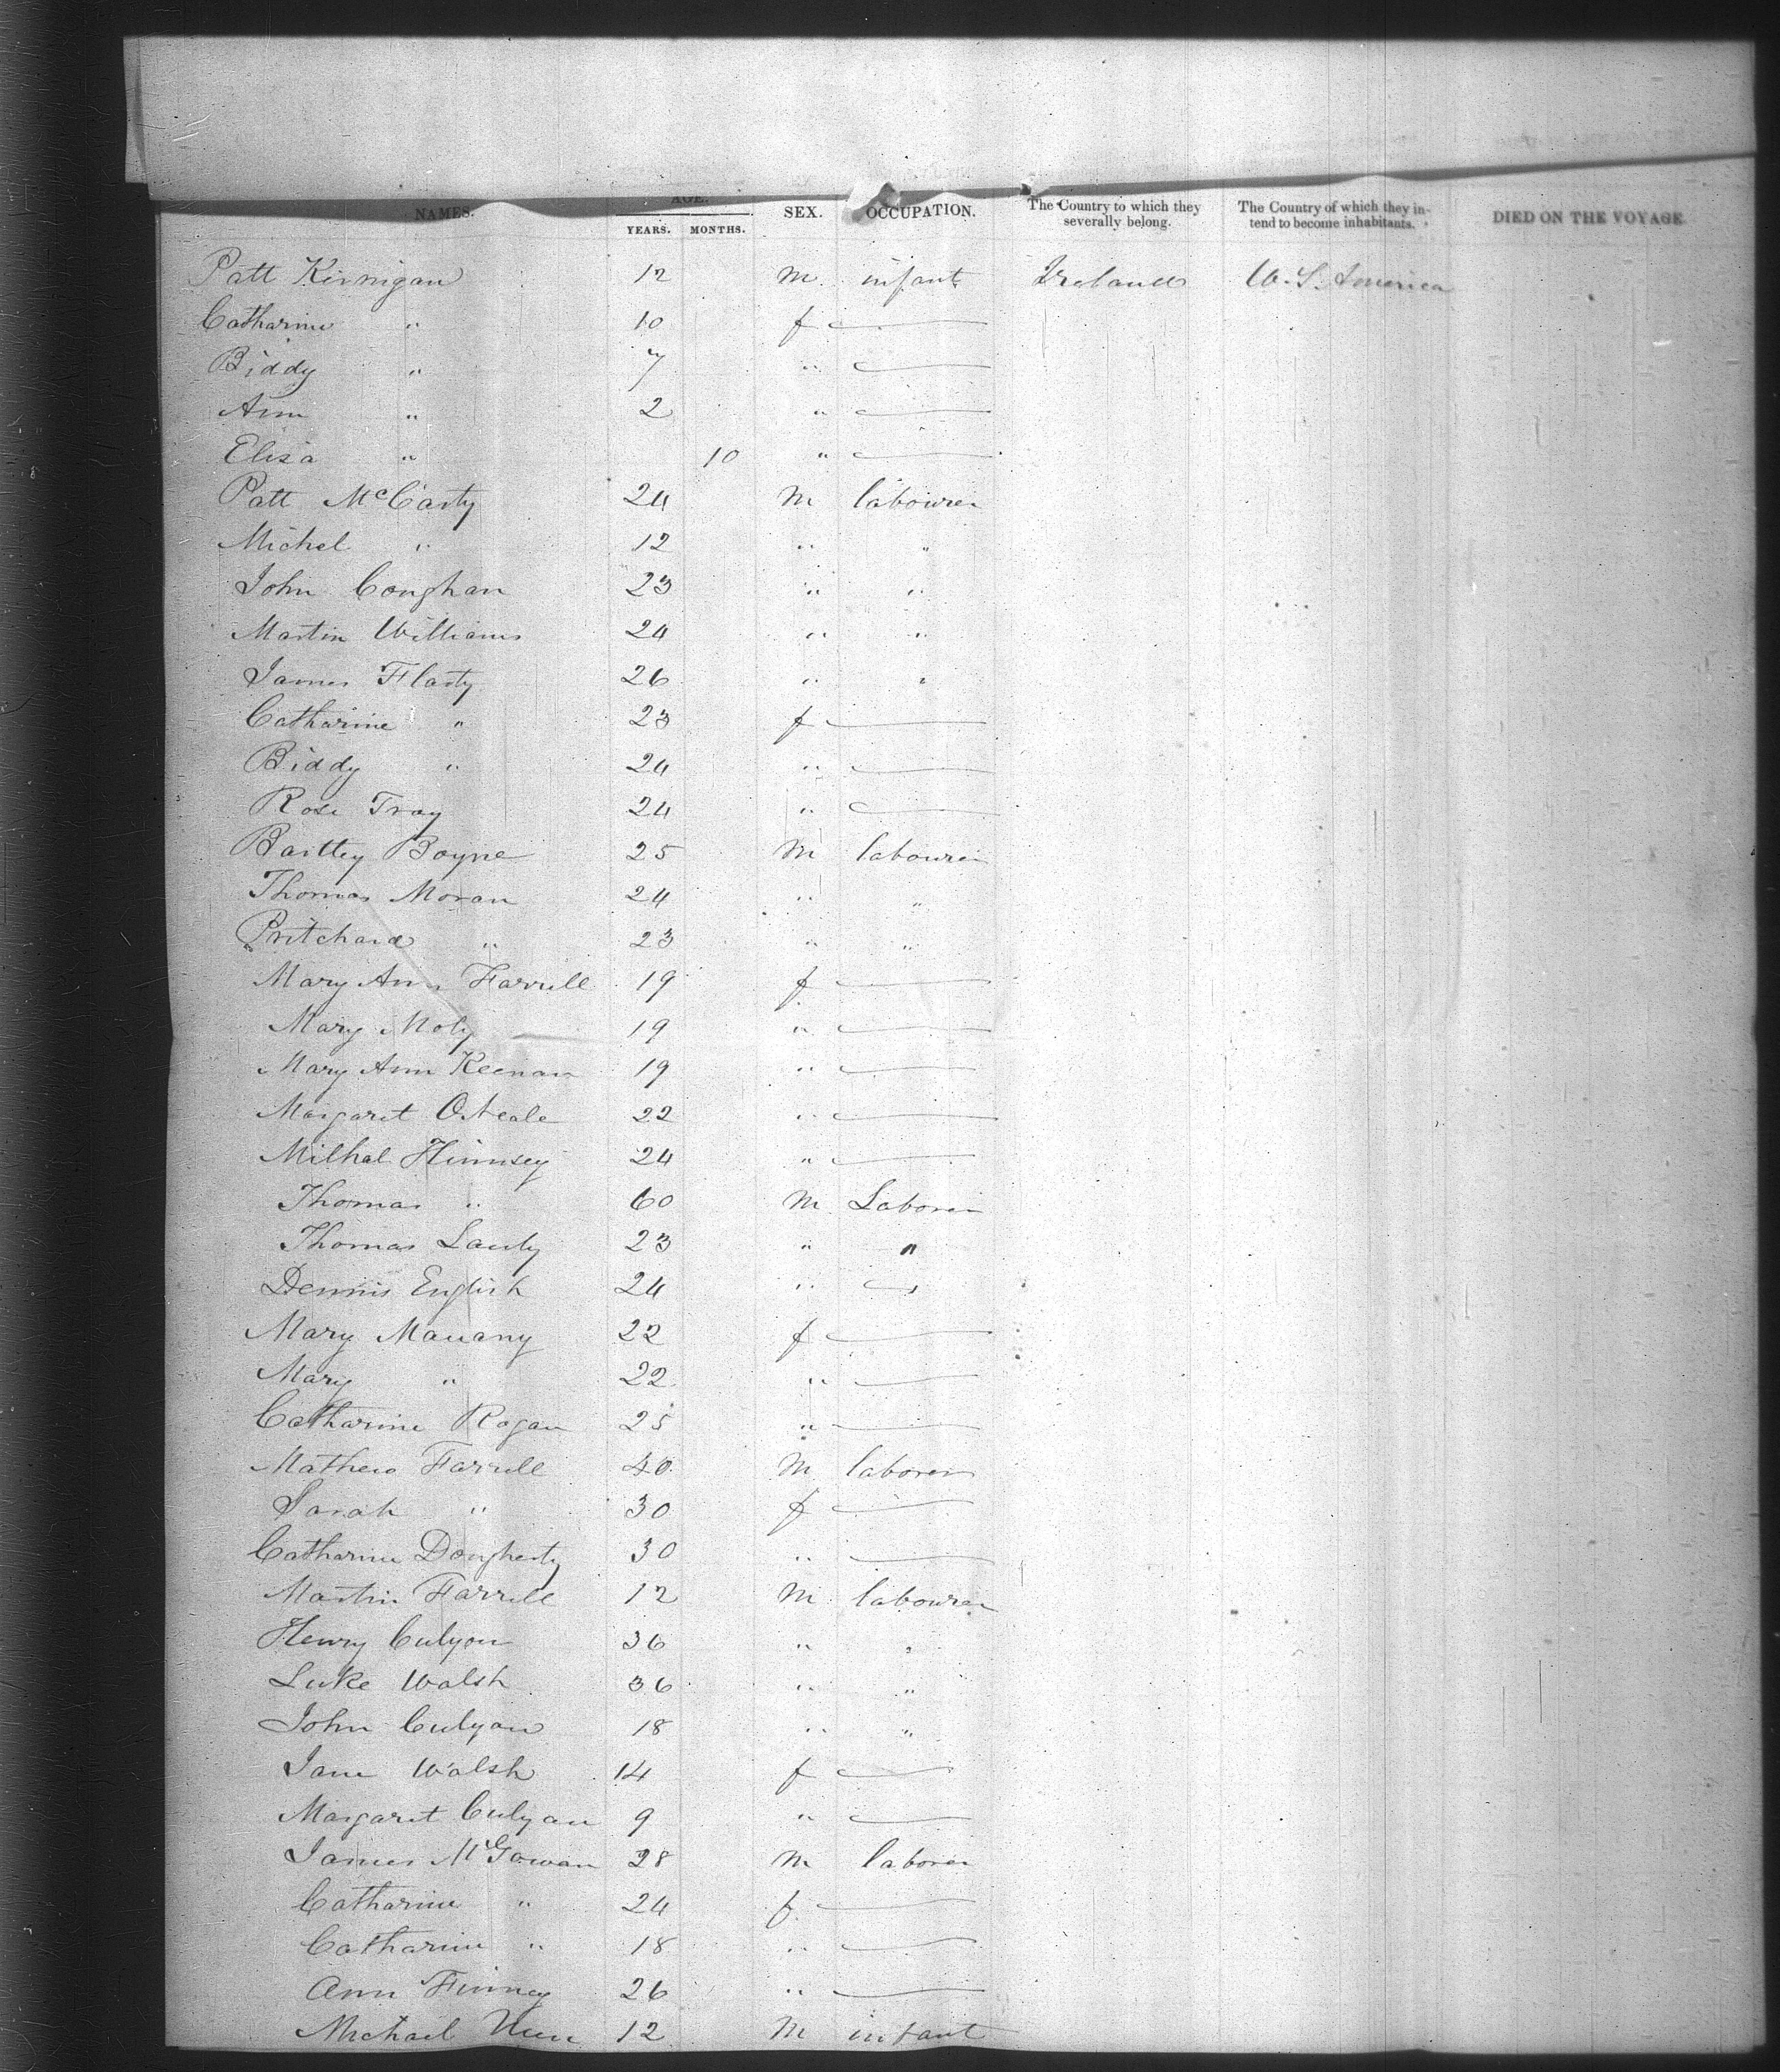 NAMES. AGE. SEX. OCCUPATION. The Country to which they severally belong. The Country of which they intend to become inhabitants. DIED ON THE VOYAGE
YEARS. MONTHS.
Patt Kirnigan 12 M. infant Ireland U. S. America
Catharine " 10 f —
Biddy " 7 " —
Ann " 2 " —
Elisa " 10 " —
Patt McCarty 24 M labourer
Michel " 12 " "
John Coughan 23 " "
Martin Williams 24 " "
James Flarty 26 " "
Catharine " 23 f —
Biddy " 24 " —
Rose Tray 24 " —
Bartley Boyne 25 M labourer
Thomas Moran 24 " "
Pritchard " 23 " "
Mary Ann Farrell 19 f —
Mary Moly 19 " —
Mary Ann Keenan 19 " —
Margaret ONeale 22 " —
Milhal Himsey 24 " —
Thomas " 60 M Laborer
Thomas Lauly 23 " "
Dennis English 24 " "
Mary Mauany 22 f —
Mary " 22 " —
Catharine Rogan 25 " —
Mathew Farrell 40 M laborer
Sarah " 30 f —
Catharine Dougherty 30 " —
Martin Farrell 12 M labourer
Henry Culyon 36 " "
Luke Walsh 36 " "
John Culyan 18 " "
Jane Walsh 14 f —
Margaret Culyan 9 " —
James McGowan 28 M laborer
Catharine " 24 f. —
Catharine " 18 " —
Ann Finney 26 " —
Michael 12 M infant